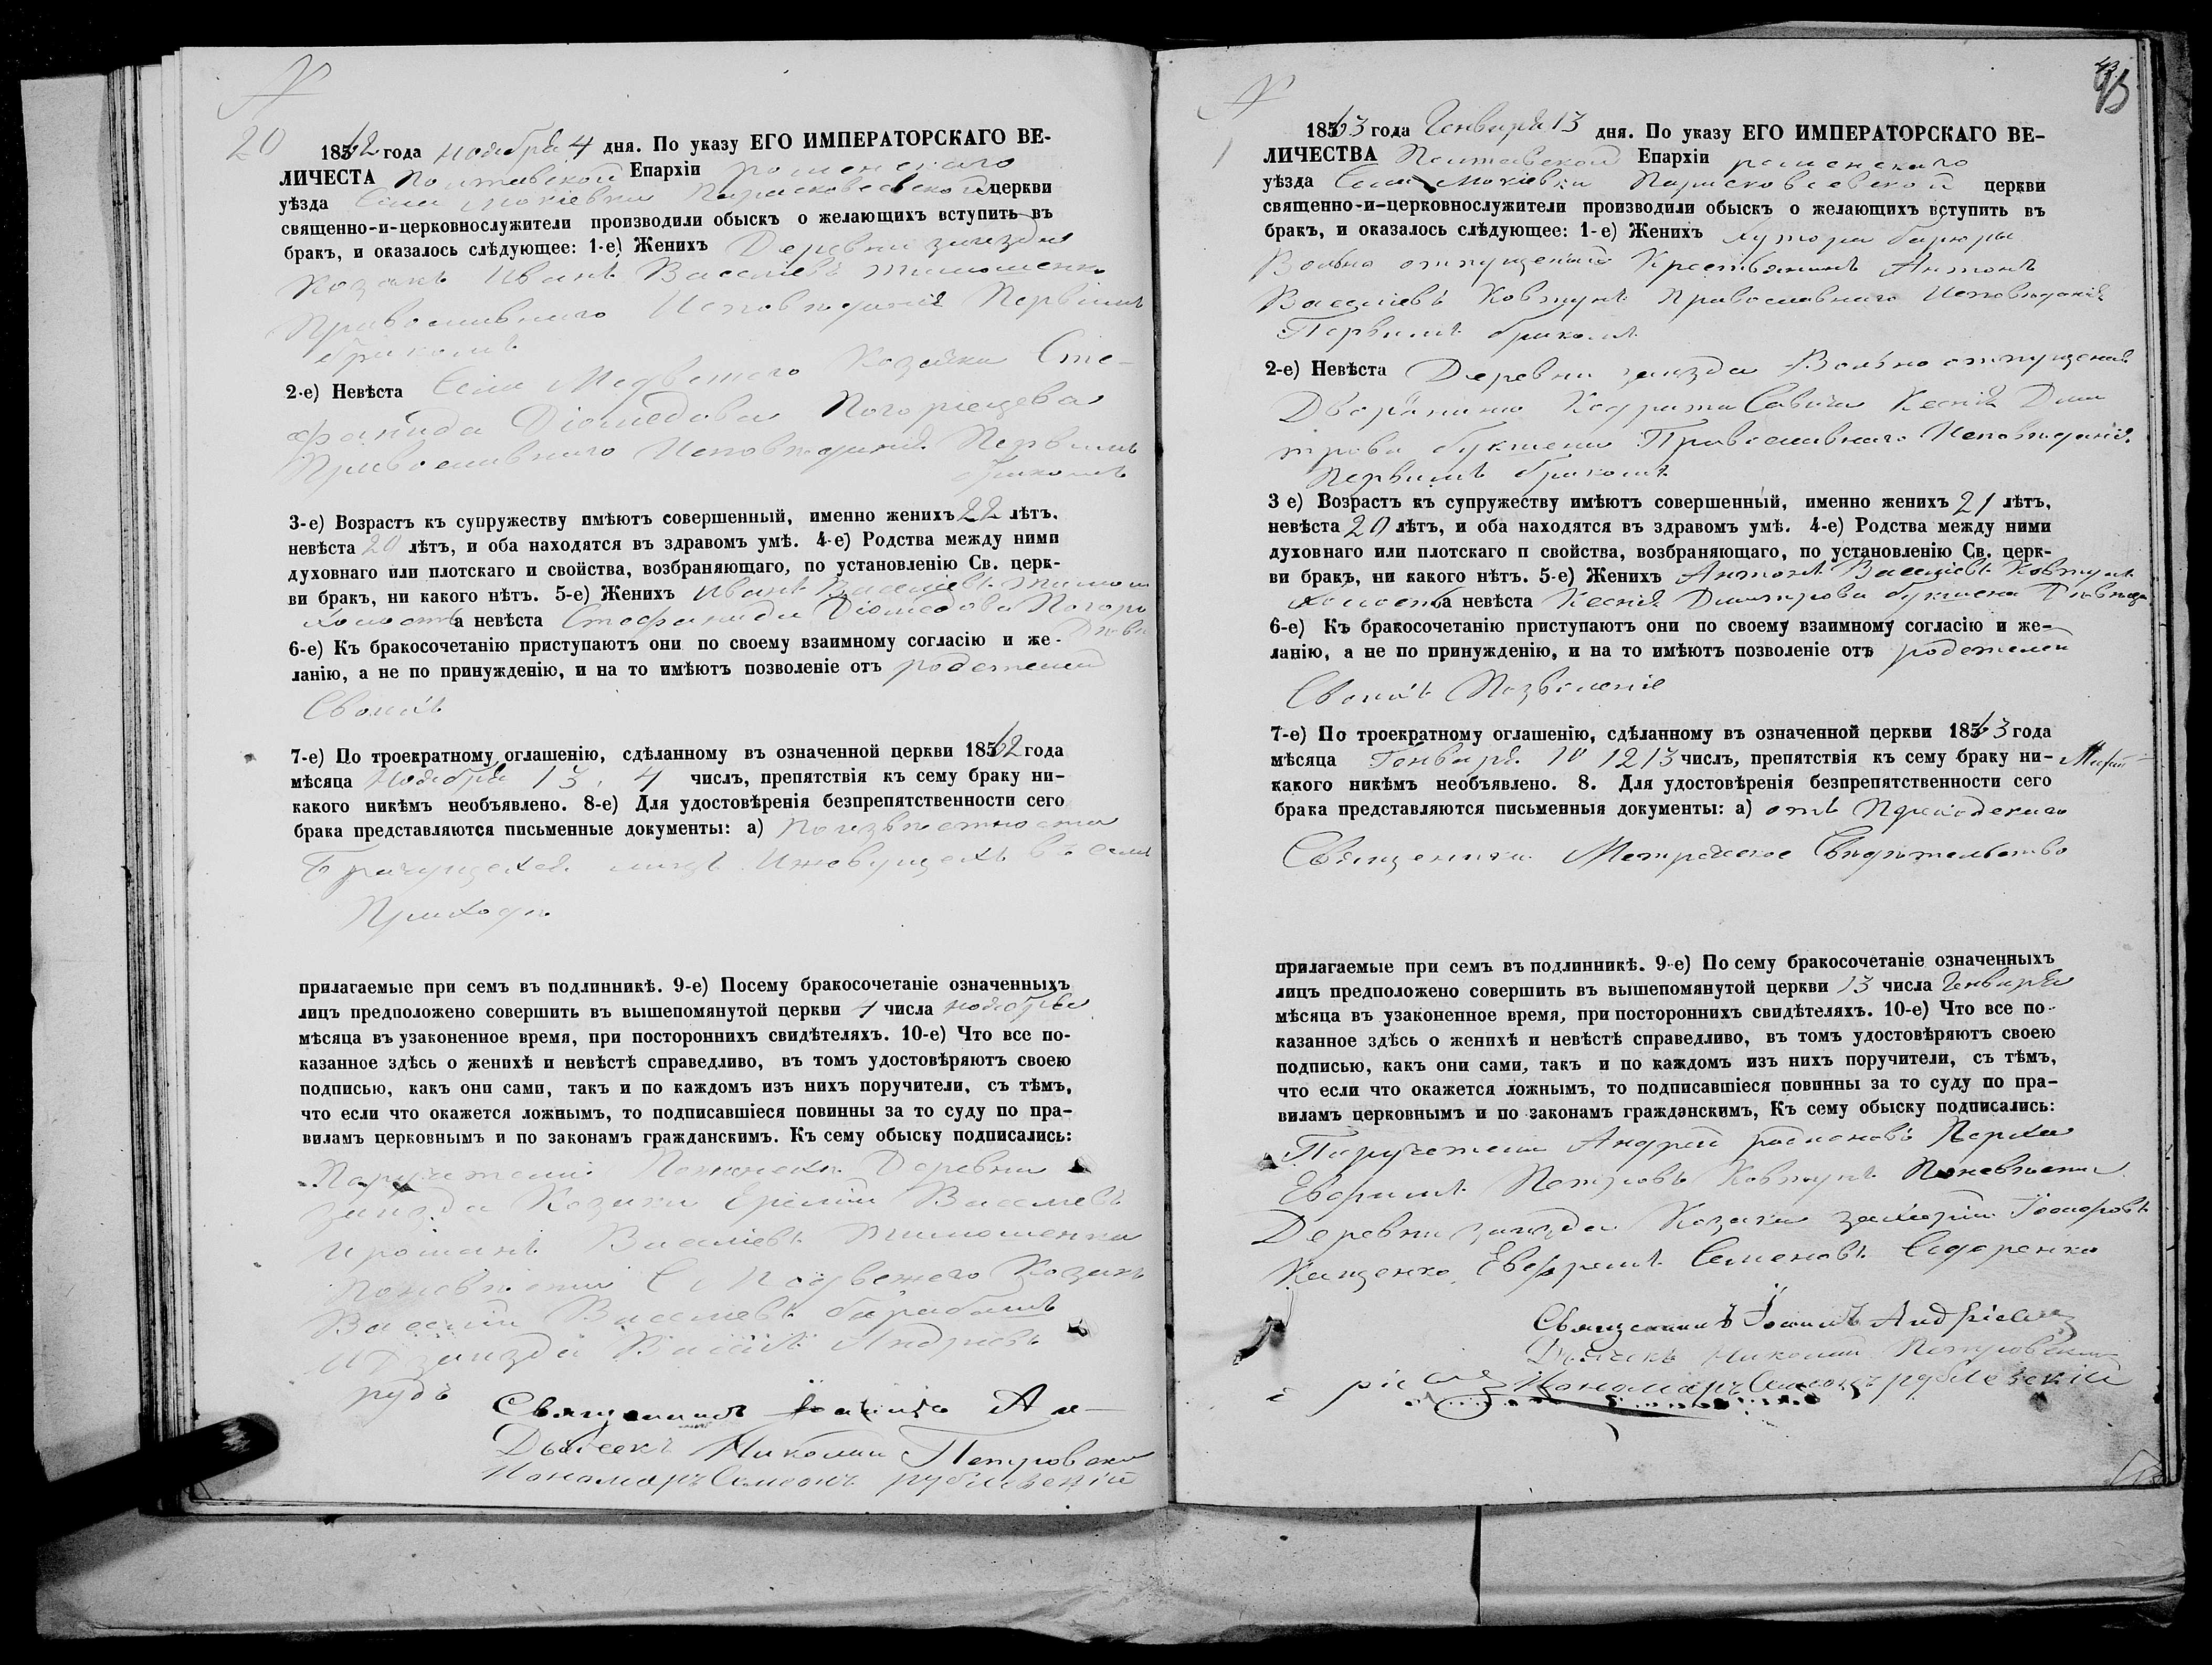 №
20
1862 года Ноября 4 дня. По указу ЕГО ИМПЕРАТОРСКАГО ВЕ-
ЛИЧЕСТА Полтавской Епархіи роменскаго
уѣзда Села Мокіевки Парасковеевской церкви
священно-и-церковнослужители производили обыскъ о желающихъ вступить въ
бракъ, и оказалось слѣдующее: 1-е) Женихъ Деревни заезда
Козакъ Иванъ Василіевъ Тимошенко
Православнаго Исповѣданія Первымъ
бракомъ
2-е) Невѣста Села Медвежего Козачка Сте-
фанида Діомедова Погорщева
Православнаго Исповѣданія Первымъ
бракомъ
3-е) Возрастъ къ супружеству имѣютъ совершенный, именно женихъ 22 лѣтъ.
невѣста 20 лѣтъ, и оба находятся въ здравомъ умѣ. 4-е) Родства между ними
духовнаго или плотскаго и свойства, возбраняющаго, по установленію Св. церк-
ви бракъ, ни какого нѣтъ. 5-е) Женихъ Иванъ Василіевъ Тимош
холостъ а невѣста Стефанида Діомедова Погорщ
6-е) Къ бракосочетанію приступаютъ они по своему взаимному согласію и же-
ланію, а не по принужденію, и на то имѣютъ позволеніе отъ родителей
Своихъ
7-е) По троекратному оглашенію, сдѣланному въ означенной церкви 1862 года
мѣсяца Ноября 1 3. 4 числъ, препятствія къ сему браку ни-
какого никѣмъ необъявлено. 8-е) Для удостовѣренія безпрепятственности сего
брака представляются письменные документы: а) Поизвѣстности
Брачущехся лицъ Иживущехъ въ семъ
Приходѣ
прилагаемые при семъ въ подлинникѣ. 9-е) Посему бракосочетаніе означенныхъ
лицъ предположено совершить въ вышепомянутой церкви 4 числа ноября
мѣсяца въ узаконенное время, при постороннихъ свидѣтеляхъ. 10-е) Что все по-
казанное здѣсь о женихѣ и невѣстѣ справедливо, въ томъ удостовѣряютъ своею
подписью, какъ они сами, такъ и по каждомъ изъ нихъ поручители, съ тѣмъ,
что если что окажется ложнымъ, то подписавшіеся повинны за то суду по пра-
виламъ церковнымъ и по законамъ гражданскимъ. Къ сему обыску подписались:
Поручители Поженеху Деревни
заизда Козаки Еремій Василіевъ
Ироманъ Василіевъ Тимошенки
Поневѣсти С. Медвежего Козакъ
Василій Василіевъ барабашъ
ИД заизда Василь Андріевъ
рудъ
Священникъ Іоаннъ Ан-
Дьячекъ Николай Петровскій
Пономаръ Симеонъ рублевскій
43
№
1
1863 года Генваря 13 дня. По указу ЕГО ИМПЕРАТОРСКАГО ВЕ-
ЛИЧЕСТВА Полтавской Епархіи роменскаго
уѣзда Села Мокіевки Парасковеевской церкви
священно-и-церковнослужители производили обыскъ о желающихъ вступить въ
бракъ, и оказалось слѣдующее: 1-е) Женихъ Хутора
Вольно отпущеный Крестянинъ Антонъ
Василіевъ Ковтунъ Православнаго Исповѣданія
Первымъ бракомъ
2-е) Невѣста Деревни заизда Вольно отпущеная
Дворянина Кодрата Савича Ксенія Дми
трова букшена Православнаго Исповѣданія
Первымъ бракомъ
3 е) Возрастъ къ супружеству имѣютъ совершенный, именно женихъ 21 лѣтъ,
невѣста 20 лѣтъ, и оба находятся въ здравомъ умѣ. 4-е) Родства между ними
духовнаго или плотскаго п свойства, возбраняющаго, по установленію Св. церк-
ви бракъ, ни какого нѣтъ. 5-е) Женихъ Антонъ Василіевъ Ковтунъ
холостъ а невѣста Ксенія Дмитрова букшена Дѣвица
6-е) Къ бракосочетанію приступаютъ они по своему взаимному согласію и же-
ланію, а не по принужденію, и на то имѣютъ позволеніе отъ родителей
Своихъ Позволеніе
7-е) По троекратному оглашенію, сдѣланному въ означенной церкви 1863 года
мѣсяца Генваря 10 12 13 числъ, препятствія къ сему браку ни-
какого никѣмъ необъявлено. 8. Для удостовѣренія безпрепятственности сего
брака представляются письменныя документы: а) отъ Приходскаго
Священника Метрическое Свидѣтельство
прилагаемые при семъ въ подлинникѣ. 9-е) По сему бракосочетаніе означенныхъ
лицъ предположено совершить въ вышепомянутой церкви 13 числа Генваря
мѣсяца въ узаконенное время, при постороннихъ свидѣтеляхъ. 10-е) Что все по-
казанное здѣсь о женихѣ и невѣстѣ справедливо, въ томъ удостовѣряютъ своею
подписью, какъ они сами, такъ и по каждомъ изъ нихъ поручители, съ тѣмъ,
что если что окажется ложнымъ, то подписавшіеся повинны за то суду по пра-
виламъ церковнымъ и по законамъ гражданскимъ, Къ сему обыску подписались:
Поручетели Андрей радионовъ Перха
Ефремъ Петровъ Ковтунъ Поневѣсти
Деревни заизда Козаки захарій Федоровъ
Кащенко Ефремъ Семеновъ Сидоренко
Священникъ Іоаннъ Андріевъ
Дьячекъ Николай Петровскій
Пономаръ Симеонъ рублевскій